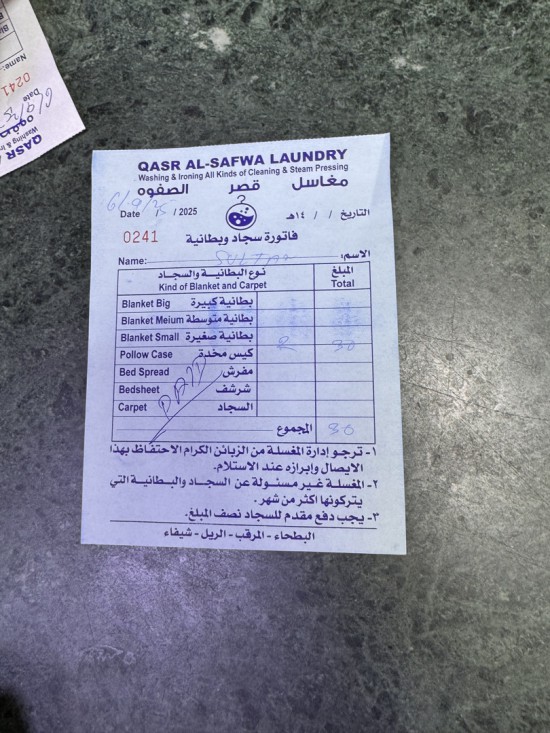 QASR AL-SAFWA LAUNDRY
Washing & Ironing All Kinds of Cleaning & Steam Pressing
مغاسل قصر الصفوه
Date 6/9/25 / 2025 التاريخ / / ١٤هـ
0241 فاتورة سجاد وبطانية
Name: SULTAN الاسم:
نوع البطانيـة والسجاد المبلغ
Kind of Blanket and Carpet Total
Blanket Big بطانية كبيرة
Blanket Meium بطانية متوسطة
Blanket Small بطانية صغيرة 2 30
Pollow Case كيس مخدة
Bed Spread مفرش
Bedsheet شرشف
Carpet السجاد
PAID
المجموع 30
١- ترجو إدارة المغسلة من الزبائن الكرام الاحتفاظ بهذا
الايصال وإبرازه عند الاستلام.
٢- المغسلة غير مسئولة عن السجاد والبطانية التي
يتركونها اكثر من شهر.
٣- يجب دفع مقدم للسجاد نصف المبلغ.
البطحاء - المرقب - الريل - شيفاء
QASR
Washing & Ir
الصفوه
Date 6/9/25
0241
Name: